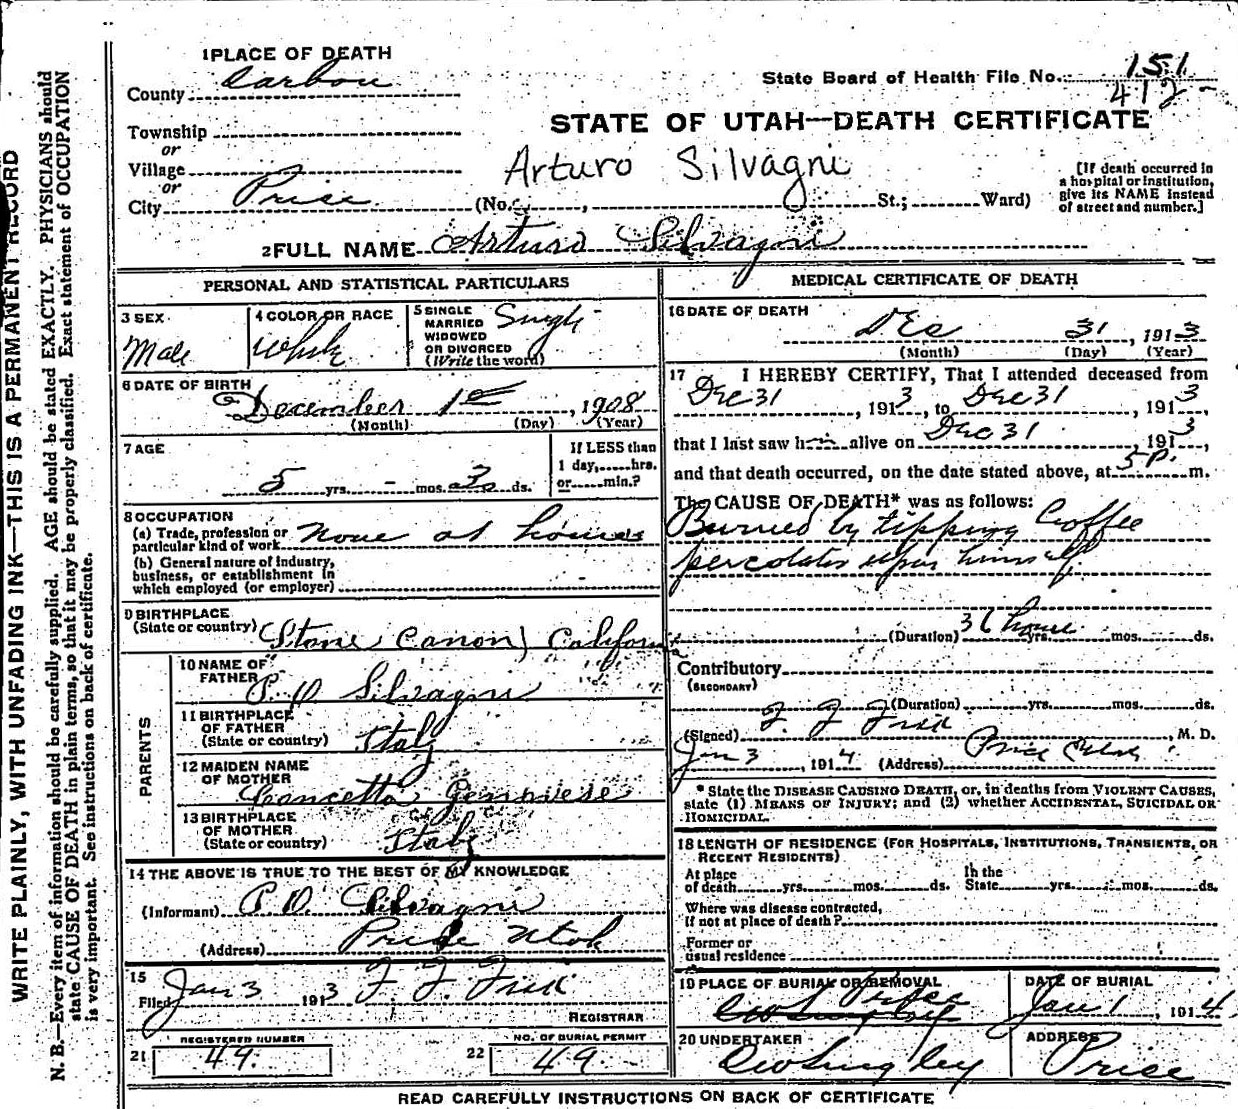 WRITE PLAINLY, WITH UNFADING INK—THIS IS A PERMANENT RECORD
N. B.—Every item of information should be carefully supplied. AGE should be stated EXACTLY. PHYSICIANS should
state CAUSE OF DEATH in plain terms, so that it may be properly classified. Exact statement of OCCUPATION
is very important. See instructions on back of certificate.
1 PLACE OF DEATH
County Carbon
Township
or
Village
or
City Price (No. , St.; Ward)
State Board of Health File No. 151
412
STATE OF UTAH—DEATH CERTIFICATE
Arturo Silvagni
[If death occurred in
a hospital or institution,
give its NAME instead
of street and number.]
2 FULL NAME Arturo Silvagni
PERSONAL AND STATISTICAL PARTICULARS
3 SEX
Male
4 COLOR OR RACE
White
5 SINGLE
MARRIED
WIDOWED
OR DIVORCED
(Write the word)
Single
6 DATE OF BIRTH
December 1st, 1908
(Month) (Day) (Year)
7 AGE
5 yrs. - mos. 30 ds.
If LESS than
1 day, hrs.
or min.?
8 OCCUPATION
(a) Trade, profession or
particular kind of work None at home
(b) General nature of industry,
business, or establishment in
which employed (or employer)
9 BIRTHPLACE
(State or country) Stone Canon, California
PARENTS
10 NAME OF
FATHER P. D. Silvagni
11 BIRTHPLACE
OF FATHER
(State or country) Italy
12 MAIDEN NAME
OF MOTHER Concetta Genovese
13 BIRTHPLACE
OF MOTHER
(State or country) Italy
14 THE ABOVE IS TRUE TO THE BEST OF MY KNOWLEDGE
(Informant) P. D. Silvagni
(Address) Price Utah
15
Filed Jan 3 1913 F. F. Fisk
REGISTRAR
21 REGISTERED NUMBER
49.
22 NO. OF BURIAL PERMIT
49
MEDICAL CERTIFICATE OF DEATH
16 DATE OF DEATH
Dec 31, 1913
(Month) (Day) (Year)
17 I HEREBY CERTIFY, That I attended deceased from
Dec 31, 1913, to Dec 31, 1913,
that I last saw him alive on Dec 31, 1913,
and that death occurred, on the date stated above, at 5 P. m.
The CAUSE OF DEATH* was as follows:
Burned by tipping Coffee
percolator upon himself
(Duration) 36 hours yrs. mos. ds.
Contributory
(SECONDARY)
(Duration) yrs. mos. ds.
(Signed) F. F. Fisk, M. D.
Jan 3, 1914 (Address) Price Utah
* State the DISEASE CAUSING DEATH, or, in deaths from VIOLENT CAUSES,
state (1) MEANS OF INJURY; and (2) whether ACCIDENTAL, SUICIDAL OR
HOMICIDAL.
18 LENGTH OF RESIDENCE (FOR HOSPITALS, INSTITUTIONS, TRANSIENTS, OR
RECENT RESIDENTS)
At place
of death yrs. mos. ds.
In the
State yrs. mos. ds.
Where was disease contracted,
If not at place of death?
Former or
usual residence
19 PLACE OF BURIAL OR REMOVAL
Price
DATE OF BURIAL
Jan 1, 1914
20 UNDERTAKER
ADDRESS
Price
READ CAREFULLY INSTRUCTIONS ON BACK OF CERTIFICATE